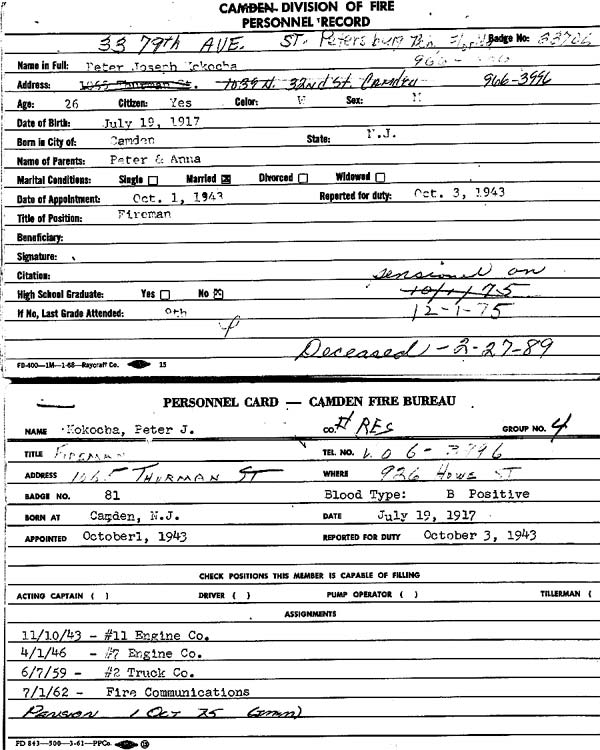 CAMDEN DIVISION OF FIRE
PERSONNEL RECORD
33 79th AVE. ST. Petersburg Florida Badge No:
966-
Name in Full: Peter Joseph Kokocha
Address: 1065 Thurman St. 1039 N. 32nd St Camden 966-3996
Age: 26 Citizen: Yes Color: W Sex: M
Date of Birth: July 19, 1917
Born in City of: Camden State: N.J.
Name of Parents: Peter & Anna
Marital Conditions: Single ☐ Married ☒ Divorced ☐ Widowed ☐
Date of Appointment: Oct. 1, 1943 Reported for duty: Oct. 3, 1943
Title of Position: Fireman
Beneficiary:
Signature:
Citation: Pensioned on
High School Graduate: Yes ☐ No ☒ 10/1/75
If No, Last Grade Attended: 9th 12-1-75
Deceased - 2-27-89
FD-400—1M—1-68—Raycraft Co. 15
PERSONNEL CARD — CAMDEN FIRE BUREAU
NAME Kokocha, Peter J. CO. # RES GROUP NO. 4
TITLE FIREMAN TEL. NO. WO 6-3996
ADDRESS 1065 THURMAN ST WHERE 926 HOWE ST
BADGE NO. 81 Blood Type: B Positive
BORN AT Camden, N.J. DATE July 19, 1917
APPOINTED October1, 1943 REPORTED FOR DUTY October 3, 1943
CHECK POSITIONS THIS MEMBER IS CAPABLE OF FILLING
ACTING CAPTAIN ( ) DRIVER ( ) PUMP OPERATOR ( ) TILLERMAN (
ASSIGNMENTS
11/10/43 - #11 Engine Co.
4/1/46 - #7 Engine Co.
6/7/59 - #2 Truck Co.
7/1/62 - Fire Communications
PENSION 1 OCT 75
FD 843—500—3-61—PPCo. 15